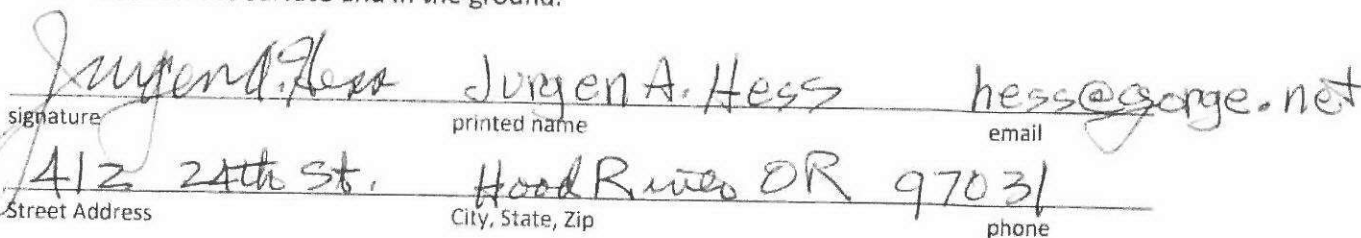 surface and in the ground.
Jurgen A. Hess Jurgen A. Hess hess@gorge.net
signature printed name email
412 24th St. Hood River OR 97031
Street Address City, State, Zip phone